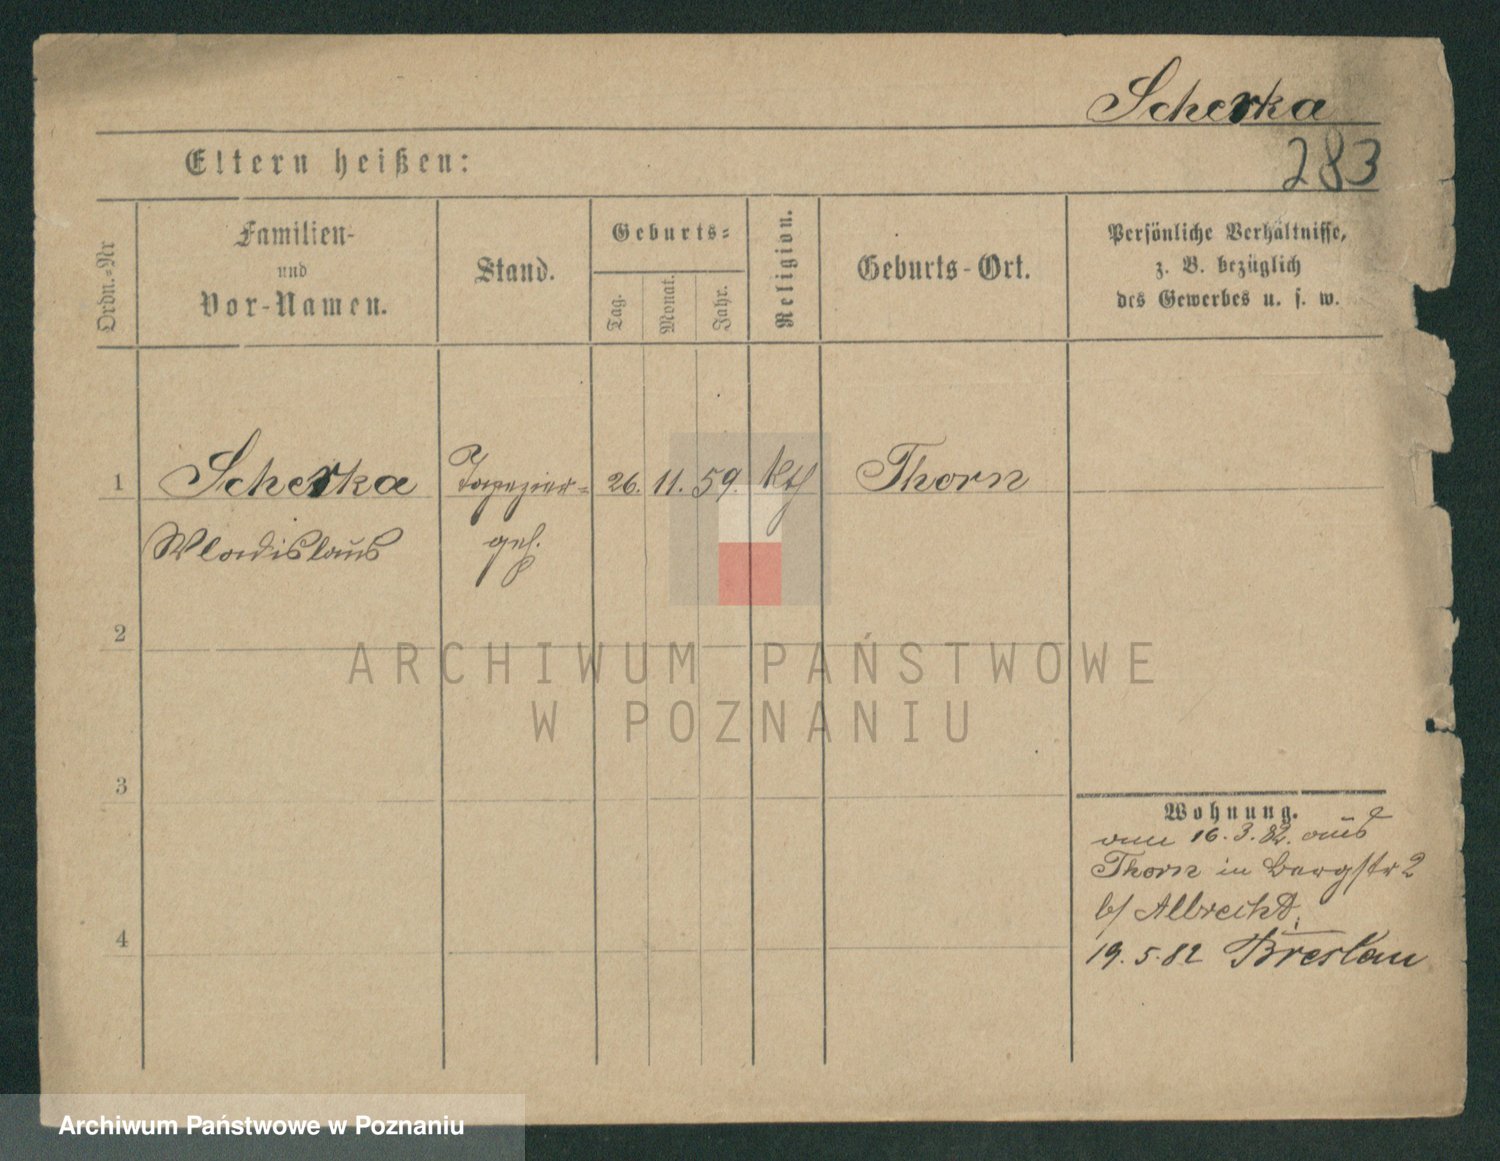 Scherka
283
Eltern heißen:
Ordn.-Nr
Familien-
und
Vor-Namen.
Stand.
Geburts-
Tag.
Monat.
Jahr.
Religion.
Geburts-Ort.
Persönliche Verhältnisse,
z. B. bezüglich
des Gewerbes u. s. w.
1 Scherka Tapezier- 26. 11. 59. kth Thorn
Wladislaus geh.
2
3
4
Wohnung.
am 16.3.82. aus
Thorn in Bergstr 2
b/ Albrecht.
19.5.82 Breslau
ARCHIWUM PAŃSTWOWE
W POZNANIU
Archiwum Państwowe w Poznaniu